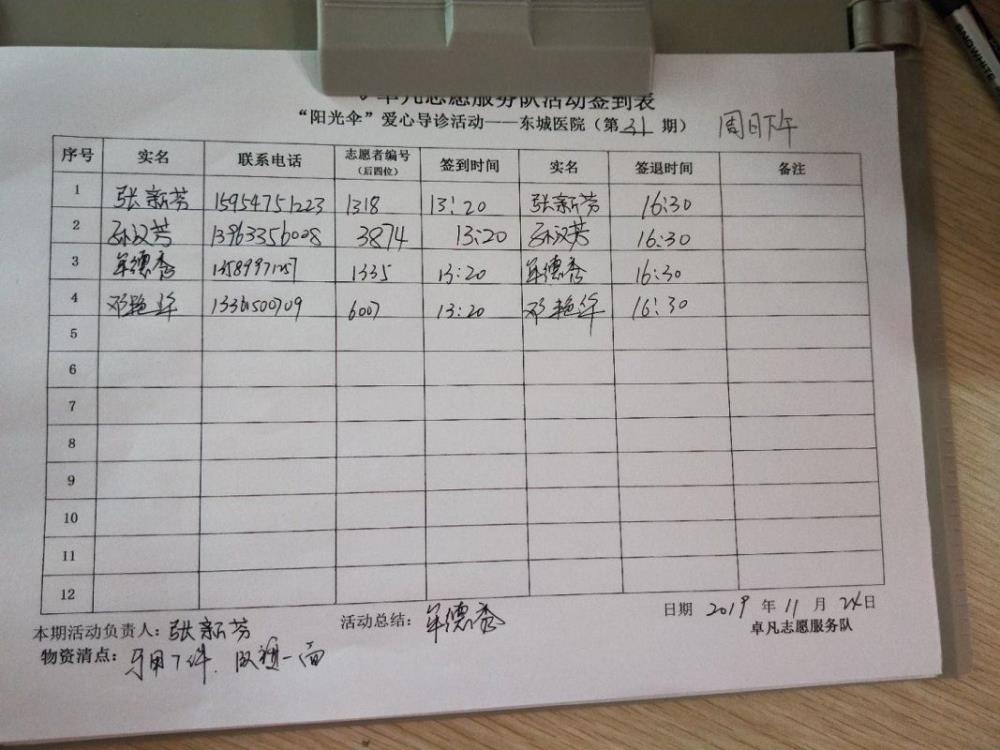 卓凡志愿服务队活动签到表
“阳光伞”爱心导诊活动——东城医院（第31期） 周日下午
序号 实名 联系电话 志愿者编号（后四位） 签到时间 实名 签退时间 备注
1 张新芳 15954751223 1318 13:20 张新芳 16:30
2 孙汉芳 13963356008 3874 13:20 孙汉芳 16:30
3 牟德秀 1335 13:20 牟德秀 16:30
4 邓艳华 6007 13:20 邓艳华 16:30
5
6
7
8
9
10
11
12
本期活动负责人：张新芳 活动总结：牟德秀 日期 2019年11月24日
卓凡志愿服务队
物资清点：马甲7件. 队旗一面